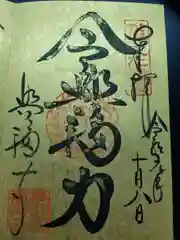 奉拝
令和元年
十月八日
令興福力
興福寺